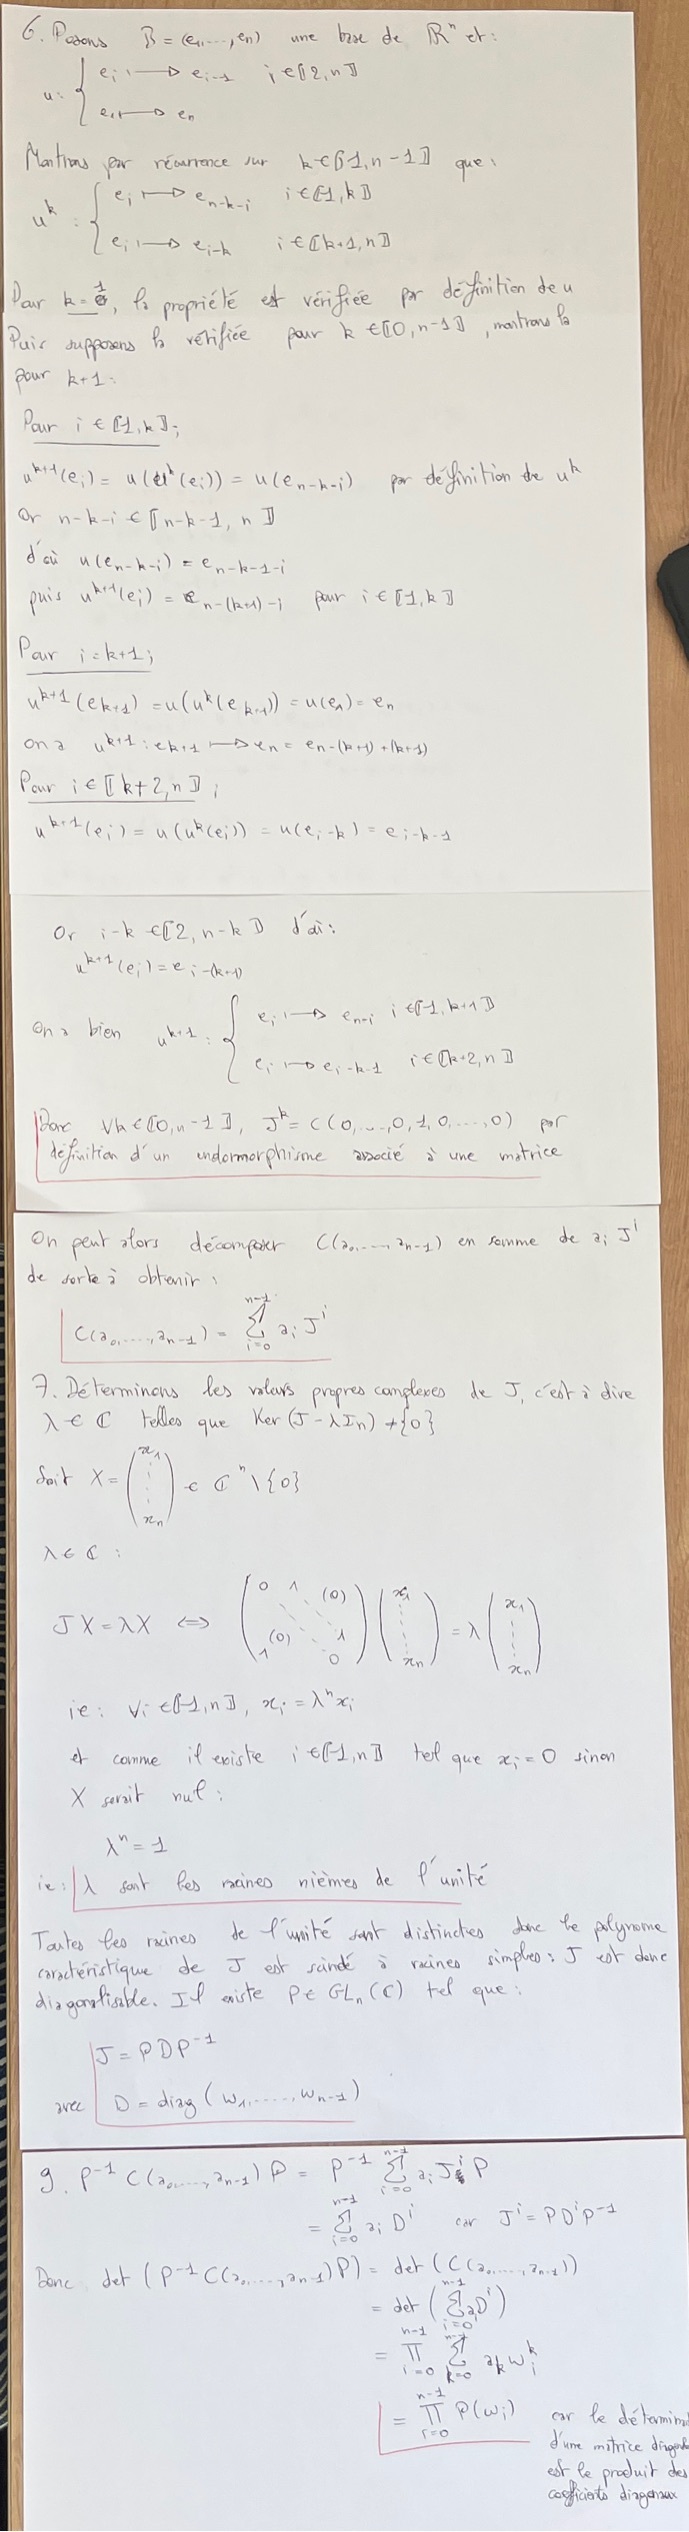 6. Posons B = (e₁, ..., eₙ) une base de ℝⁿ et :
u : { eᵢ ⟼ eᵢ₋₁ i ∈ ⟦2, n⟧
e₁ ⟼ eₙ
Montrons par récurrence sur k ∈ ⟦1, n-1⟧ que :
uᵏ : { eᵢ ⟼ eₙ₋ₖ₋ᵢ i ∈ ⟦1, k⟧
eᵢ ⟼ eᵢ₋ₖ i ∈ ⟦k+1, n⟧
Pour k = 1, la propriété est vérifiée par définition de u
Puis supposons la vérifiée pour k ∈ ⟦0, n-1⟧, montrons la
pour k+1 :
Pour i ∈ ⟦1, k⟧ ;
uᵏ⁺¹(eᵢ) = u(uᵏ(eᵢ)) = u(eₙ₋ₖ₋ᵢ) par définition de uᵏ
Or n-k-i ∈ ⟦n-k-1, n⟧
d'où u(eₙ₋ₖ₋ᵢ) = eₙ₋ₖ₋₁₋ᵢ
puis uᵏ⁺¹(eᵢ) = eₙ₋₍ₖ₊₁₎₋ᵢ pour i ∈ ⟦1, k⟧
Pour i = k+1 ;
uᵏ⁺¹(eₖ₊₁) = u(uᵏ(eₖ₊₁)) = u(e₁) = eₙ
on a uᵏ⁺¹ : eₖ₊₁ ⟼ eₙ = eₙ₋₍ₖ₊₁₎₊₍ₖ₊₁₎
Pour i ∈ ⟦k+2, n⟧ ;
uᵏ⁺¹(eᵢ) = u(uᵏ(eᵢ)) = u(eᵢ₋ₖ) = eᵢ₋ₖ₋₁
Or i-k ∈ ⟦2, n-k⟧ d'où :
uᵏ⁺¹(eᵢ) = eᵢ₋₍ₖ₊₁₎
On a bien uᵏ⁺¹ : { eᵢ ⟼ eₙ₋ᵢ i ∈ ⟦1, k+1⟧
eᵢ ⟼ eᵢ₋ₖ₋₁ i ∈ ⟦k+2, n⟧
Donc ∀k ∈ ⟦0, n-1⟧, Jᵏ = C(0, ..., 0, 1, 0, ..., 0) par
définition d'un endomorphisme associé à une matrice
On peut alors décomposer C(a₀, ..., aₙ₋₁) en somme de aᵢ Jⁱ
de sorte à obtenir :
C(a₀, ..., aₙ₋₁) = ∑ᵢ₌₀ⁿ⁻¹ aᵢ Jⁱ
7. Déterminons les valeurs propres complexes de J, c'est à dire
λ ∈ ℂ telles que Ker(J - λIₙ) ≠ {0}
Soit X = (x₁ ⋮ xₙ) ∈ ℂⁿ \ {0}
λ ∈ ℂ :
JX = λX ⟺ (0 1 (0) ⋱ (0) 1 1 0) (x₁ ⋮ xₙ) = λ (x₁ ⋮ xₙ)
ie : ∀i ∈ ⟦1, n⟧, xᵢ = λⁿxᵢ
et comme il existe i ∈ ⟦1, n⟧ tel que xᵢ = 0 sinon
X serait nul :
λⁿ = 1
ie : λ sont les racines nièmes de l'unité
Toutes les racines de l'unité sont distinctes donc le polynome
caractéristique de J est scindé à racines simples : J est donc
diagonalisable. Il existe P ∈ GLₙ(ℂ) tel que :
J = PDP⁻¹
avec D = diag(w₁, ..., wₙ₋₁)
9. P⁻¹ C(a₀, ..., aₙ₋₁) P = P⁻¹ ∑ᵢ₌₀ⁿ⁻¹ aᵢ Jⁱ P
= ∑ᵢ₌₀ⁿ⁻¹ aᵢ Dⁱ car Jⁱ = PDⁱP⁻¹
Donc det(P⁻¹ C(a₀, ..., aₙ₋₁) P) = det(C(a₀, ..., aₙ₋₁))
= det(∑ᵢ₌₀ⁿ⁻¹ aᵢDⁱ)
= ∏ᵢ₌₀ⁿ⁻¹ ∑ₖ₌₀ⁿ⁻¹ aₖ wᵢᵏ
= ∏ᵢ₌₀ⁿ⁻¹ P(wᵢ) car le détermina
d'une matrice diagonale
est le produit des
coefficients diagonaux